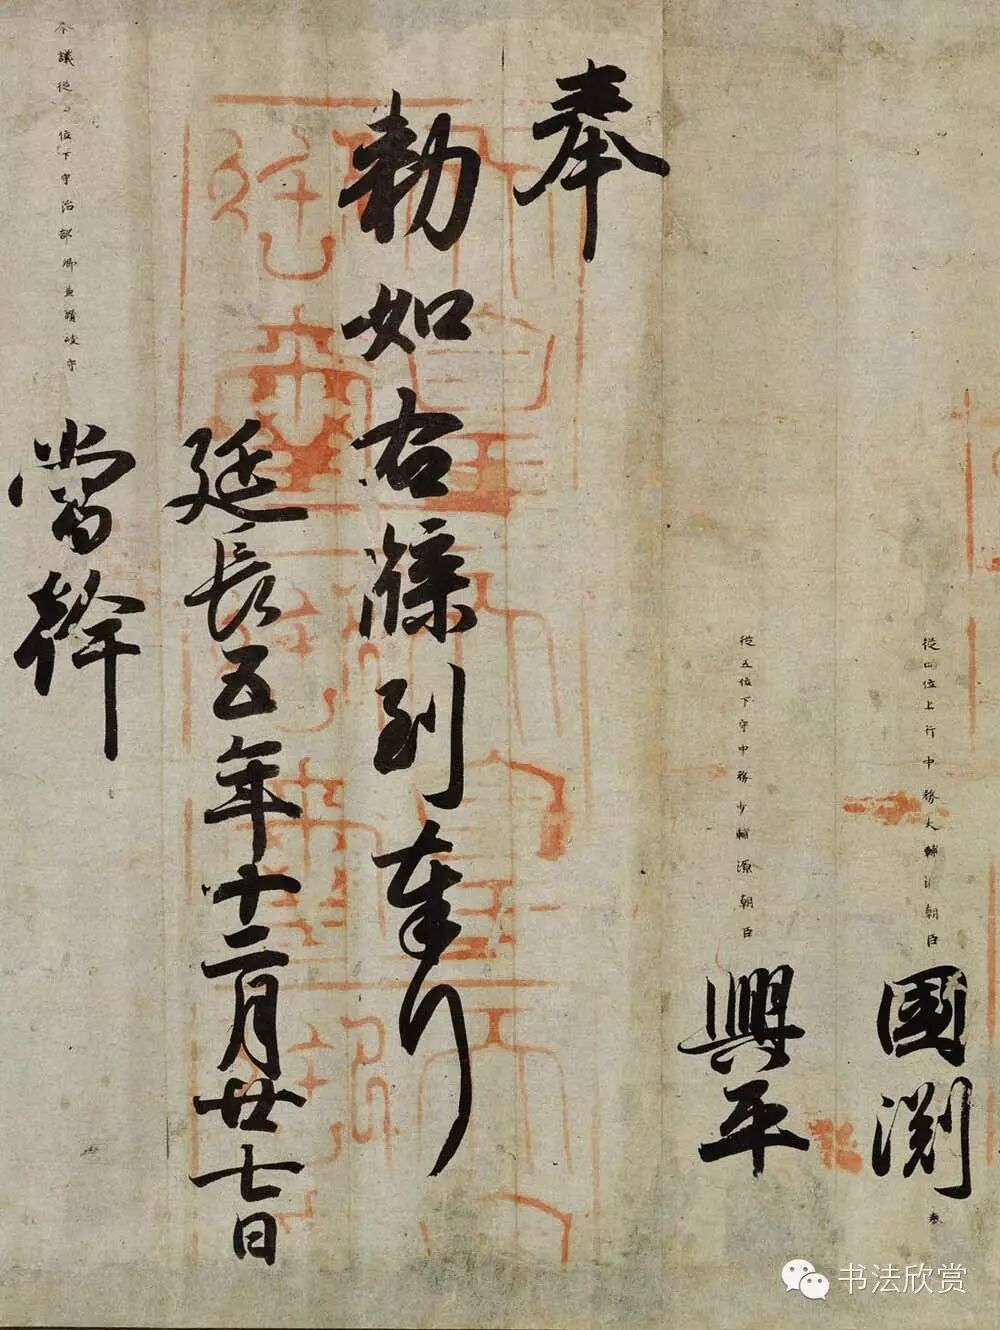 從四位上行中務大輔源朝臣國淵
從五位下守中務少輔源朝臣興平
奉
勅如右牒到奉行
延長五年十二月廿七日
參議從四位下守治部卿兼讃岐守當幹
书法欣赏